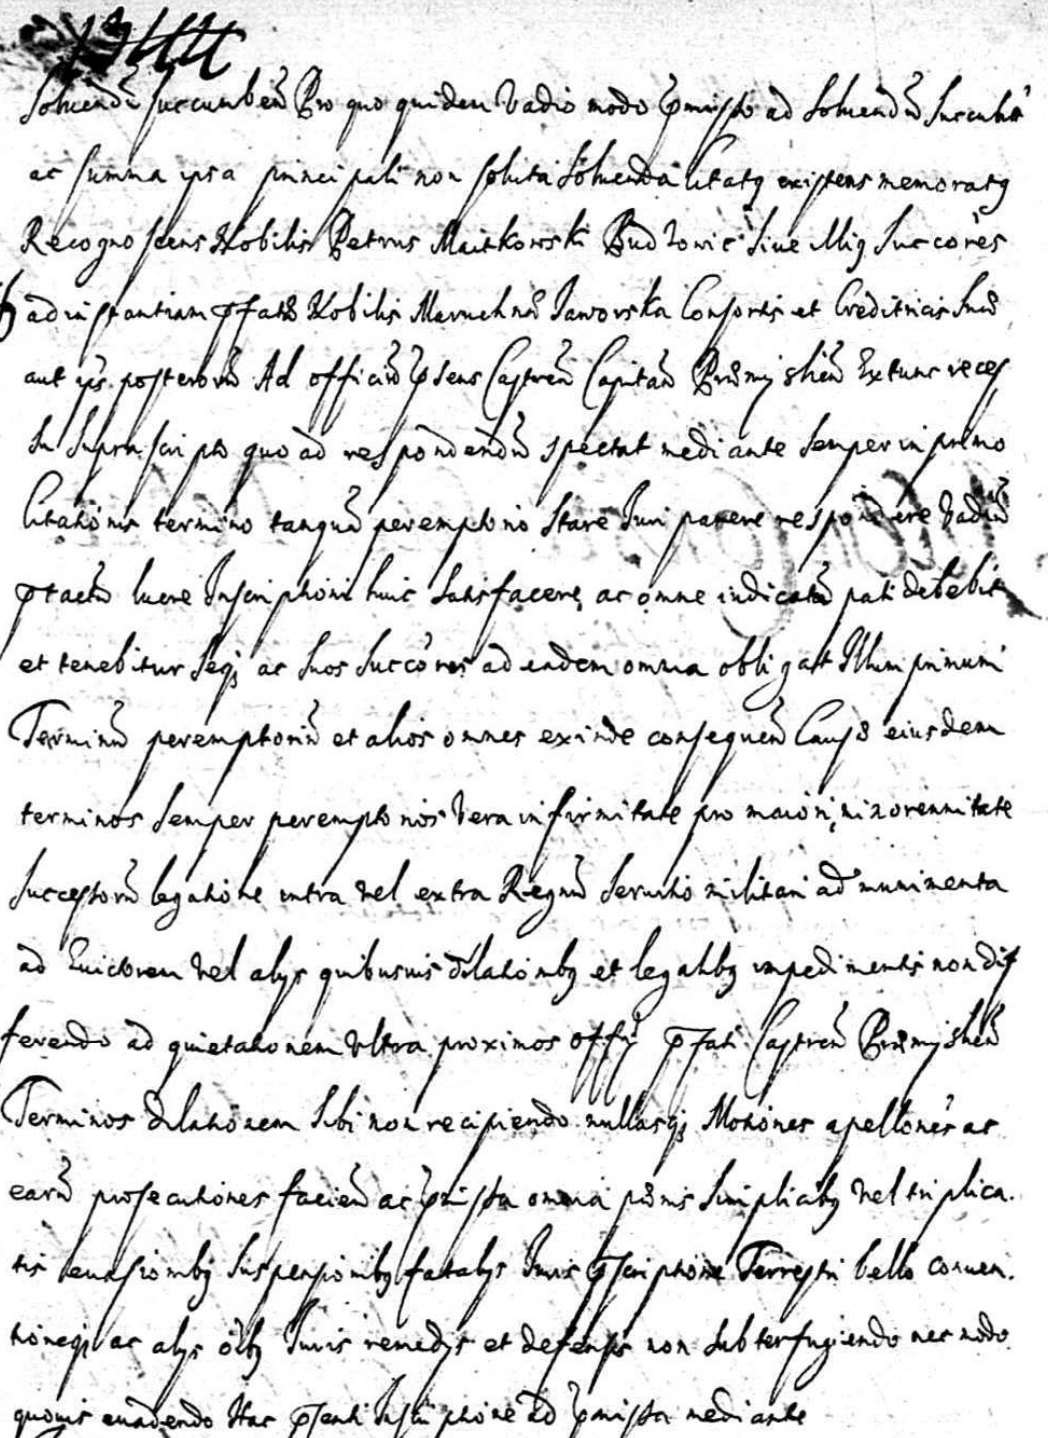 Soluendū succumbeñ Pro quo quidem Vadio modo p̄misso ad Soluendū Succubit
ac summa ipsa principali non soluta Soluenda Citatq existens memoratq
Recognoscens Nobilis Petrus Maitkowski siue illiq Succōres
ad instantiam p̄fatæ Nobilis Maruchnæ Jaworska Consortis et Creditricis Suæ
aut ips. posterorū Ad officiū p̄sens Castreñ Capitañ Præmyslieñ Extunc reces
su suprascripto quo ad respondendū spectat mediante semper in primo
Citationis termino tanquā peremptorio Stare Juri parere respondere Vadiū
p̄tactū luere Inscriptioni huic Satisfacere ac omne iudicatū pati debebit
et tenebitur Seqꝫ ac Suos Succōres ad eadem omnia obligat Illum primum
Terminū peremptoriū et alios omnes exinde consequeñ Causæ eiusdem
terminos Semper peremptorios Vera infirmitate pro maiori, minorennitate
Successorū legatione intra vel extra Regnū Seruitio militari ad munimenta
ad Euictorem vel alys quibusuis dilationibꝫ et legalibꝫ impedimentis non dif
ferendo ad quietationem Vltra proximos offy p̄fati Castreñ Præmyslieñ
Terminos dilationem Sibi non recipiendo nullasqꝫ Motiones apellōnes ac
earū prosecutiones facieñ ac p̄missa omnia pœnis Simplicibꝫ vel triplica.
tis euasionibꝫ Suspensionibꝫ fatalys Juris p̄scriptione Terrestri bello conuen.
tioneqꝫ ac alys oībꝫ Juris remedys et defensis non Subterfugiendo nec modo
quouis euadendo Hac p̄senti Inscriptione ad p̄missa mediante